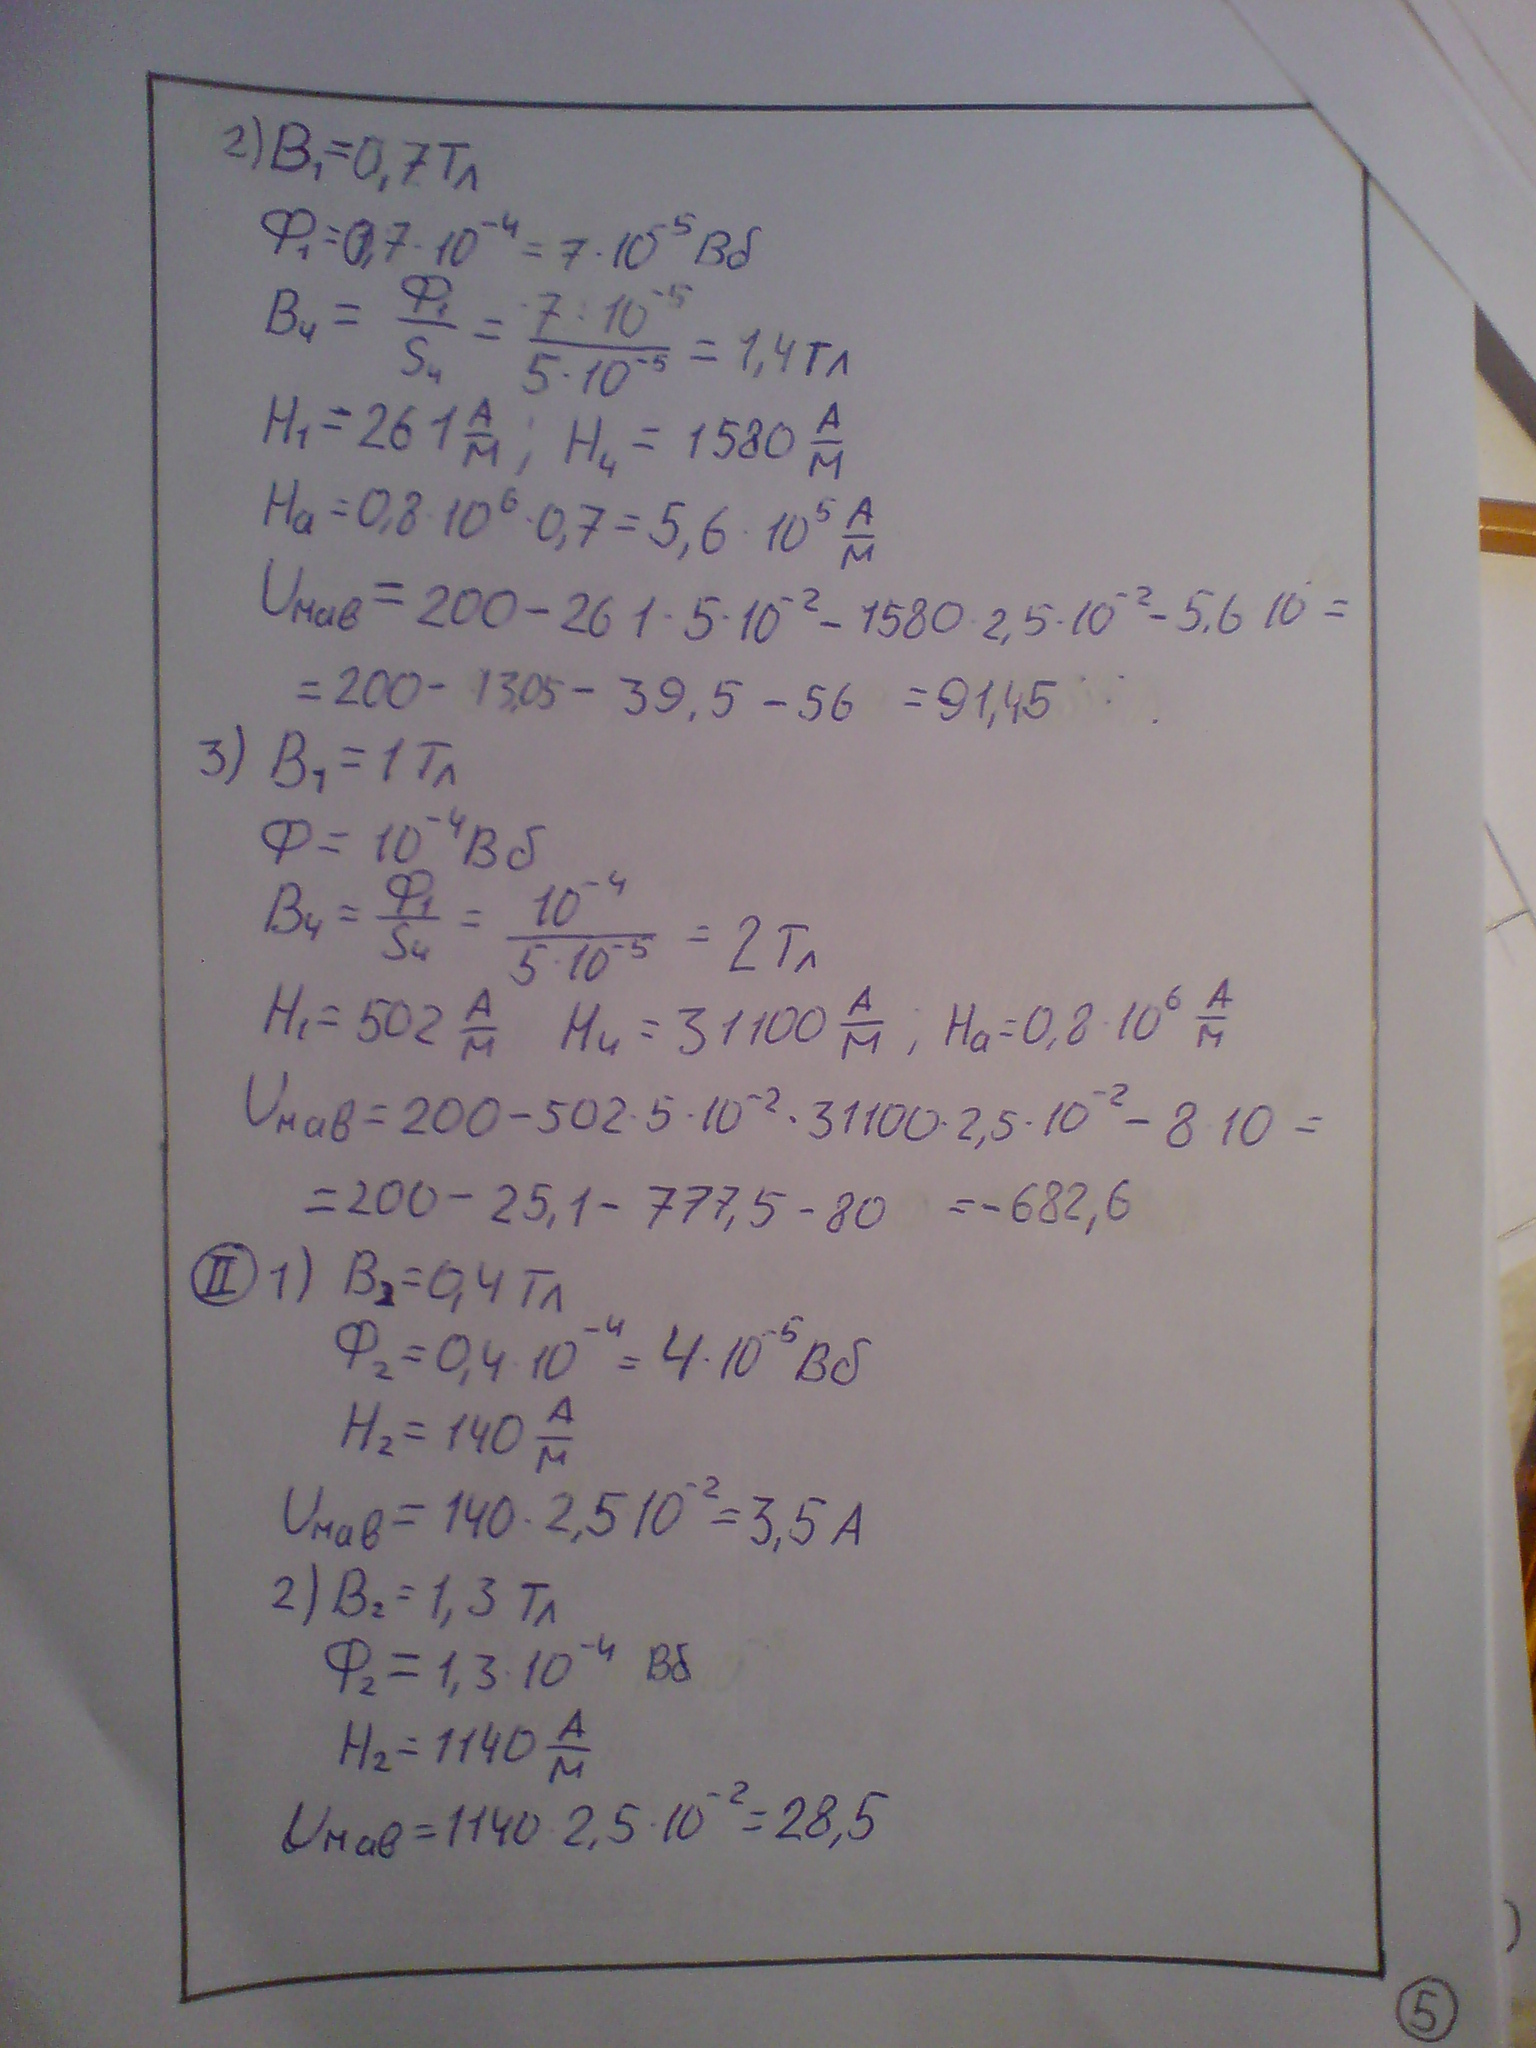 2) B₁=0,7Тл
Ф₁=0,7·10⁻⁴=7·10⁻⁵Вб
B₄ = Ф₁/S₄ = 7·10⁻⁵/5·10⁻⁵ = 1,4Тл
H₁=261 А/м; H₄ = 1580 А/м
Hа=0,8·10⁶·0,7=5,6·10⁵ А/м
Uмав = 200-261·5·10⁻²-1580·2,5·10⁻²-5,6·10 =
=200-13,05-39,5-56=91,45
3) B₁=1Тл
Ф= 10⁻⁴Вб
B₄=Ф₁/S₄ = 10⁻⁴/5·10⁻⁵ = 2Тл
H₁=502 А/м H₄=31100 А/м; Hа=0,8·10⁶ А/м
Uмав=200-502·5·10⁻²·31100·2,5·10⁻²-8·10 =
=200-25,1-777,5-80 =-682,6
II 1) B₂=0,4Тл
Ф₂=0,4·10⁻⁴=4·10⁻⁵Вб
H₂=140 А/м
Uмав=140·2,5·10⁻²=3,5А
2) B₂=1,3Тл
Ф₂=1,3·10⁻⁴ Вб
H₂=1140 А/м
Uмав=1140·2,5·10⁻²=28,5
5